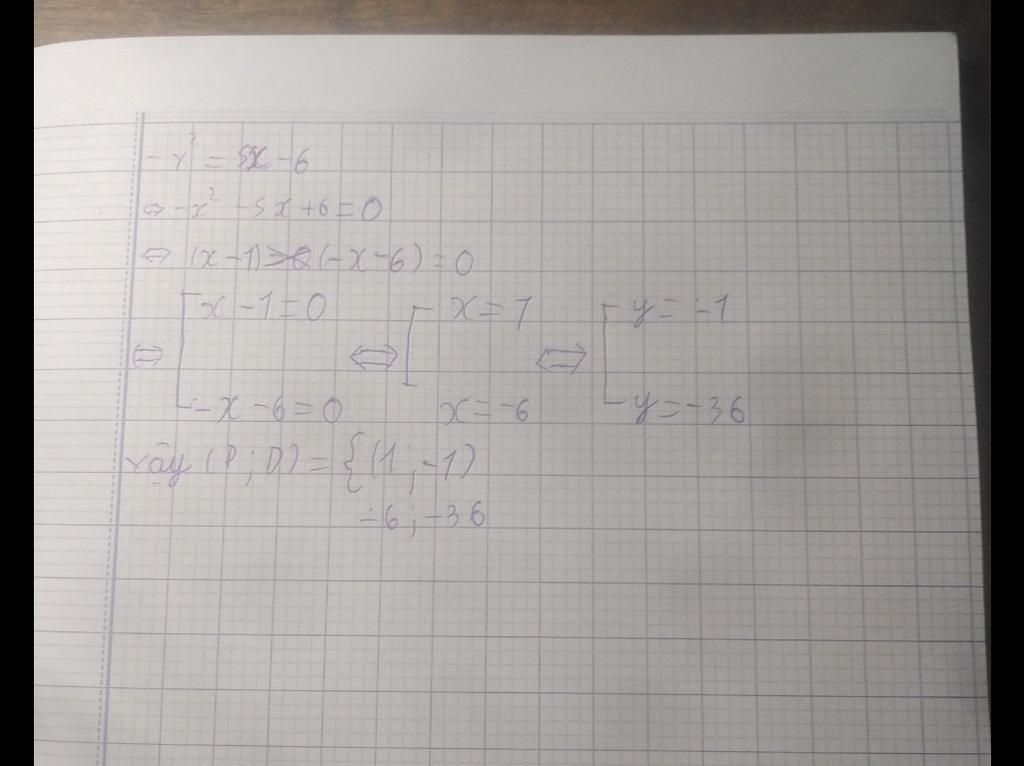 -x² = 5x - 6
⇔ -x² - 5x + 6 = 0
⇔ (x - 1)(-x - 6) = 0
⇔ [ x - 1 = 0 ⇔ [ x = 1 ⇔ [ y = -1
-x - 6 = 0 x = -6 y = -36
vậy (P; D) = {(1; -1)
-6; -36